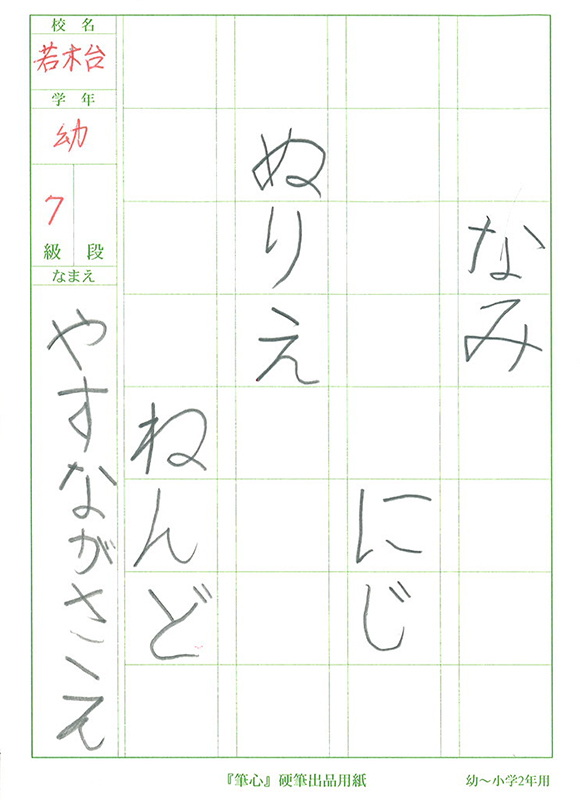 なみ
にじ
ぬりえ
ねんど
校名
若木台
学年
幼
7
級 段
なまえ
やすなが
『筆心』硬筆出品用紙
幼～小学2年用